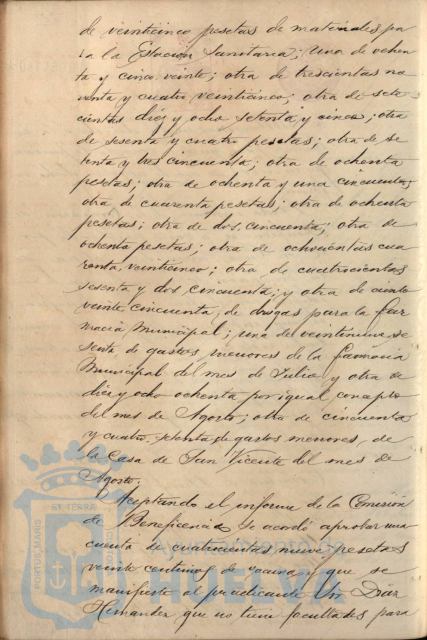 de veinticinco pesetas de materiales pa
ra la Estacion Sanitaria; una de ochen
ta y cinco veinte; otra de trescientas no
venta y cuatro veinticinco; otra de sete
cientas diez y ocho setenta y cinco; otra
de sesenta y cuatro pesetas; otra de se
tenta y tres cincuenta; otra de ochenta
pesetas; otra de ochenta y una cincuenta;
otra de cuarenta pesetas; otra de ochenta
pesetas; otra de dos, cincuenta; otra de
ochenta pesetas; otra de ochocientas cua
renta, veinticinco; otra de cuatrocientas
sesenta y dos cincuenta; y otra de ciento
veinte, cincuenta, de drogas para la Far
macia Municipal; una de veintinueve se
senta de gastos menores de la farmacia
Municipal del mes de Julio y otra de
diez y ocho ochenta por igual concepto
del mes de Agosto; otra de cincuenta
y cuatro, setenta de gastos menores, de
la Casa de San Vicente del mes de
Agosto.
Aceptando el informe de la Comisión
de Beneficencia se acordó aprobar una
cuenta de cuatrocientas nueve pesetas
veinte centimos de vacuna, que se
manifieste al practicante Sr. Diaz
Hernandez que no tiene facultades para
PORTUS MARIS
ET TERRÆ
HUELVA